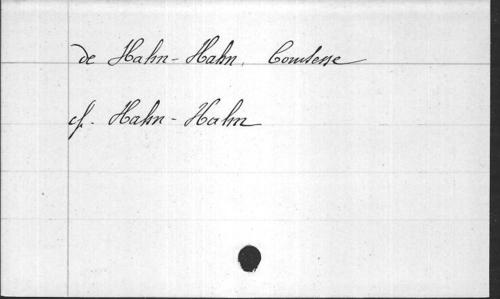 de Hahn-Hahn, Comtesse
cf. Hahn-Hahn